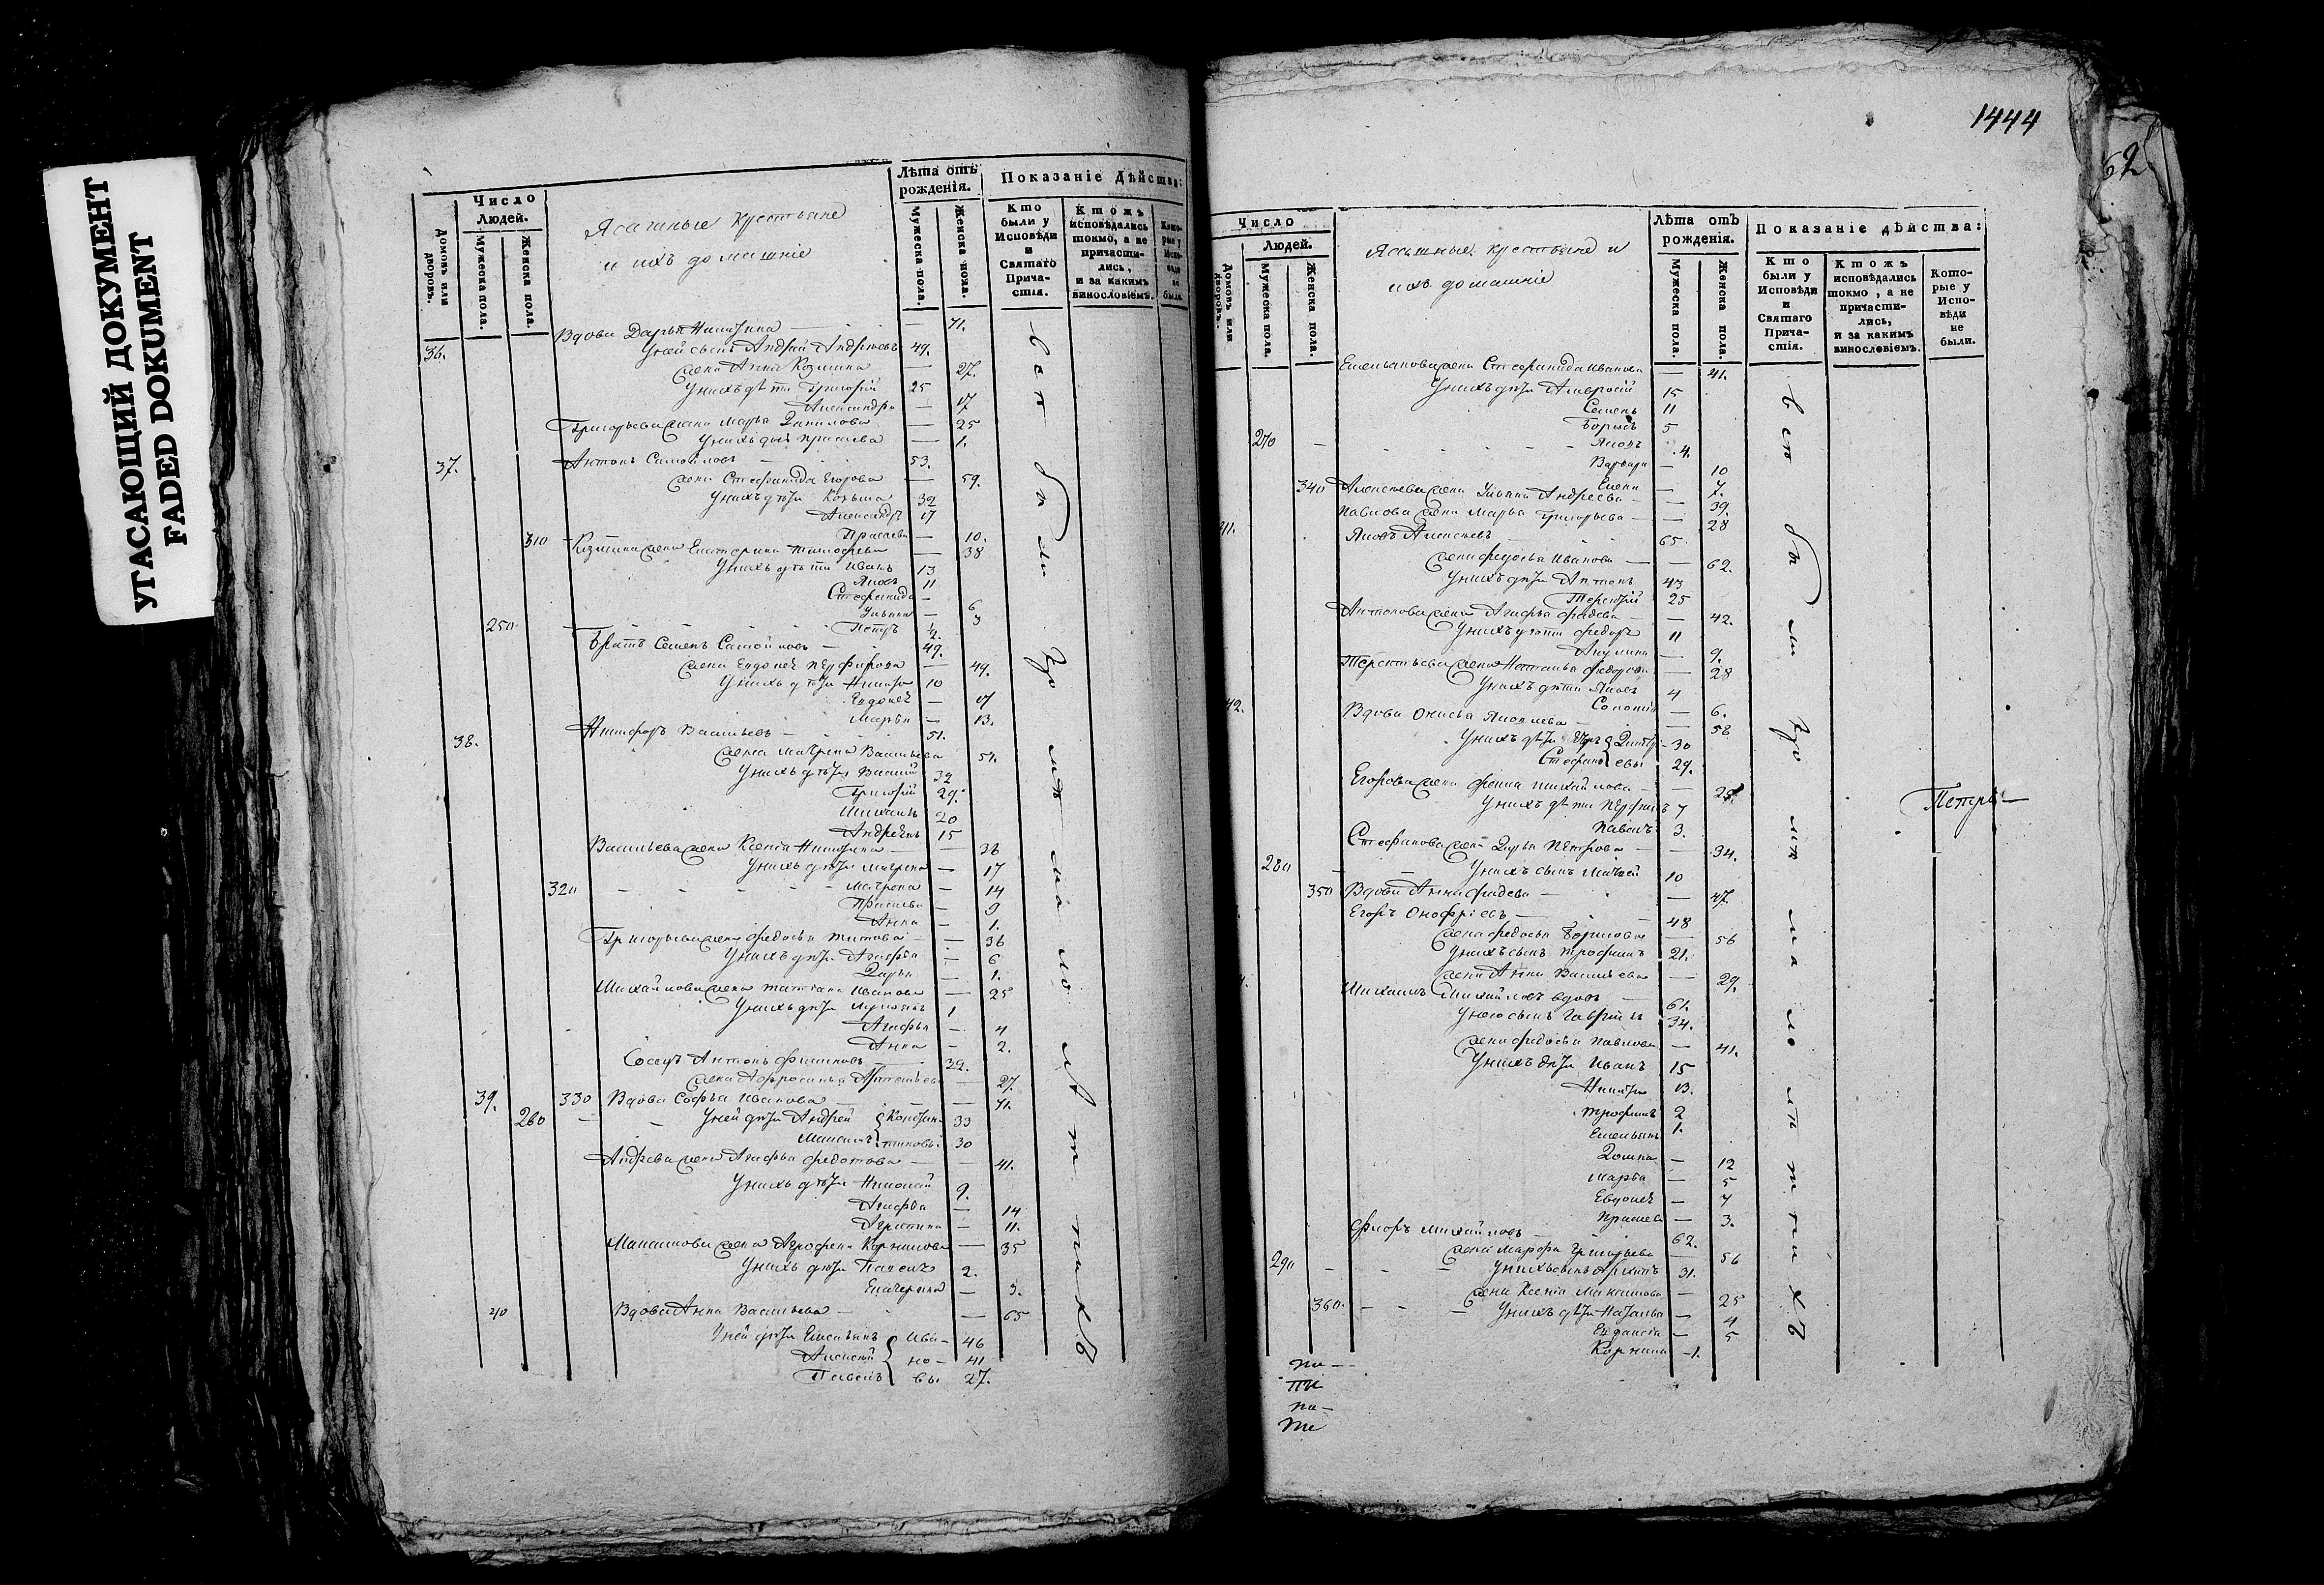 УГАСАЮЩИЙ ДОКУМЕНТ
FADED DOKUMENT
Домовъ или дворовъ.
Число Людей.
Мужеска пола.
Женска пола.
Ясашные крестьяне
и ихъ домашніе
Лѣта отъ рожденія.
Мужеска пола.
Женска пола.
Показаніе Дѣйства:
Кто были у Исповѣди и Святаго Причастія.
Ктожъ исповѣдались токмо, а не причастились, и за какимъ винословіемъ.
Которые у Исповѣди не были.
36. Вдова Дарья Никитина — 71.
У ней сынъ Андрей Андреевъ 49.
жена Анна Козмина — 27.
У нихъ дѣти Григорій 25
Александра — 17
Григорьева жена Марья Данилова — 25
У нихъ дочь Прасковья — 1.
37. Антонъ Самойловъ 53.
жена Стефанида Егорова — 59.
У нихъ дѣти Козьма 32
Александръ 17
310 Прасковья — 10.
Козмина жена Екатерина Тимофеева — 38
У нихъ дѣти Иванъ 13
Яковъ 11
Стефанида — 6
Ульяна — 3
250 Петръ ½.
Братъ Семенъ Самойловъ 49.
жена Евдокея Перфирова — 49.
У нихъ дѣти Никита 10
Евдокея — 17
Марья — 13.
38. Никифоръ Васильевъ 51.
жена Матрена Васильева 51.
У нихъ дѣти Василій 32
Григорій 29.
Михаилъ 20
Андреянъ 15
Васильева жена Ксенія Никитина — 36
У нихъ дѣти Матрена — 17
320 Матрена — 14
Прасковья — 9
Анна — 1.
Григорьева жена Федосья Титова — 36
У нихъ дѣти Агафья — 6
Дарья — 1.
Михайлова жена Татіана Иванова — 25
У нихъ дѣти 1
Агафья — 4
Анна — 2.
Сосѣдъ Антонъ Филиповъ 32.
жена Афросинья — 27.
39. 330 Вдова Софья Иванова — 71.
260 У ней дѣти Андрей 33
Максимъ 30
Андреева жена Агафья Федотова — 41.
У нихъ дѣти Николай 9.
Агафья — 14
— 11.
Максимова жена Агрофена Корнилова — 35
У нихъ дѣти 2.
Екатерина — 3.
40 Вдова Анна Васильева — 65
У ней дѣти Емельянъ Ива- 46
Алексѣй но- 41
Павелъ вы 27.
всѣ были зомѣсмалолѣтныхъ
1444
62
Домовъ или дворовъ.
Число Людей.
Мужеска пола.
Женска пола.
Ясашные крестьяне и
ихъ домашніе
Лѣта отъ рожденія.
Мужеска пола.
Женска пола.
Показаніе дѣйства:
Кто были у Исповѣди и Святаго Причастія.
Ктожъ исповѣдались токмо, а не причастились, и за какимъ винословіемъ.
Которые у Исповѣди не были.
Емельянова жена Стефанида Иванова — 41.
У нихъ дѣти Амвросій 15
Семенъ 11
Борисъ 5
270 Яковъ 4.
Варвара — 10
340 Елена — 7.
Алексѣева жена Ульяна Андреева — 39.
Павлова жена Марья Григорьева — 28
41. Яковъ Алексѣевъ 65
жена Федосья Иванова — 62.
У нихъ дѣти Антонъ 43
Терентій 25
Антонова жена Агафья Фадеева — 42.
У нихъ дѣти Федоръ 11
Акулина — 9.
Терентьева жена Наталья Федорова — 28
У нихъ дѣти Яковъ 4
— 6.
42. Вдова Онисья Яковлева — 58
У нихъ дѣти Егоръ 30
Стефанъ 29.
Егорова жена Фекла Михайлова —
У нихъ дѣти 7
Павелъ 3.
Стефанова жена Дарья Петрова — 34.
280 У нихъ сынъ Матвей 10
350 Вдова Анна Фадеева — 47.
Егоръ Онофріевъ — 48
жена Федосья Борисова — 56
У нихъ сынъ Трофимъ 21.
жена Анна Васильева — 29.
Михаилъ Михайловъ вдовъ 61.
У него сынъ Гаврилъ 34.
жена Федосья Павлова — 41.
У нихъ дѣти Иванъ 15
Никита 13.
Трофимъ 2
Емельянъ 1.
Домна — 12
Марья — 5
Евдокея — 7
Прасковья — 3.
Флоръ Михайловъ 62.
жена Марфа Григорьева — 56
290 У нихъ сынъ 31.
жена Ксенія Максимова — 25
360 У нихъ дѣти Наталья — 4
— 5
1.
Петръ —